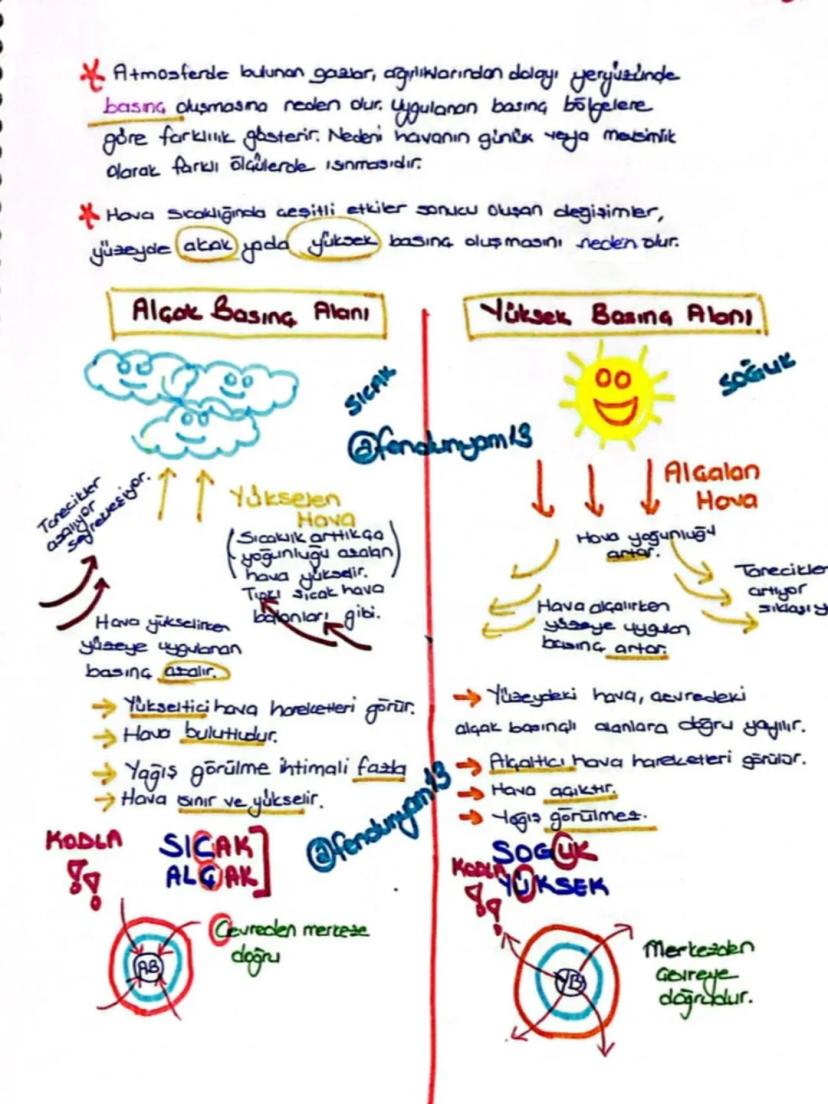 * Atmosferde bulunan gazlar, ağırlıklarından dolayı yeryüzünde
basınç oluşmasına neden olur. Uygulanan basınç bölgelere
göre farklılık gösterir. Nedeni havanın günlük veya mevsimlik
olarak farklı ölçülerde ısınmasıdır.
* Hava sıcaklığında çeşitli etkiler sonucu oluşan değişimler,
yüzeyde alçak yada yüksek basınç oluşmasını neden olur.
Alçak Basınç Alanı
SICAK
@fendunyam13
Tanecikler
azalıyor
seyrekleşiyor.
Yükselen
Hava
(Sıcaklık arttıkça
yoğunluğu azalan
hava yükselir.
Tıpkı sıcak hava
balonları gibi.)
Hava yükselirken
yüzeye uygulanan
basınç azalır.
→ Yükseltici hava hareketleri görür.
→ Hava bulutludur.
→ Yağış görülme ihtimali fazla
→ Hava ısınır ve yükselir.
@fendunyam13
KODLA
!!
SICAK
ALÇAK
AB
Çevreden merkeze
doğru
Yüksek Basınç Alanı
SOĞUK
Alçalan
Hava
Hava yoğunluğu
artar.
Tanecikler
artıyor
sıklaşıy
Hava alçalırken
yüzeye uygulan
basınç artar.
→ Yüzeydeki hava, çevredeki
alçak basınçlı alanlara doğru yayılır.
→ Alçaltıcı hava hareketleri görülür.
→ Hava açıktır.
→ Yağış görülmez.
KODLA
!!
SOGUK
YÜKSEK
YB
Merkezden
çevreye
doğrudur.